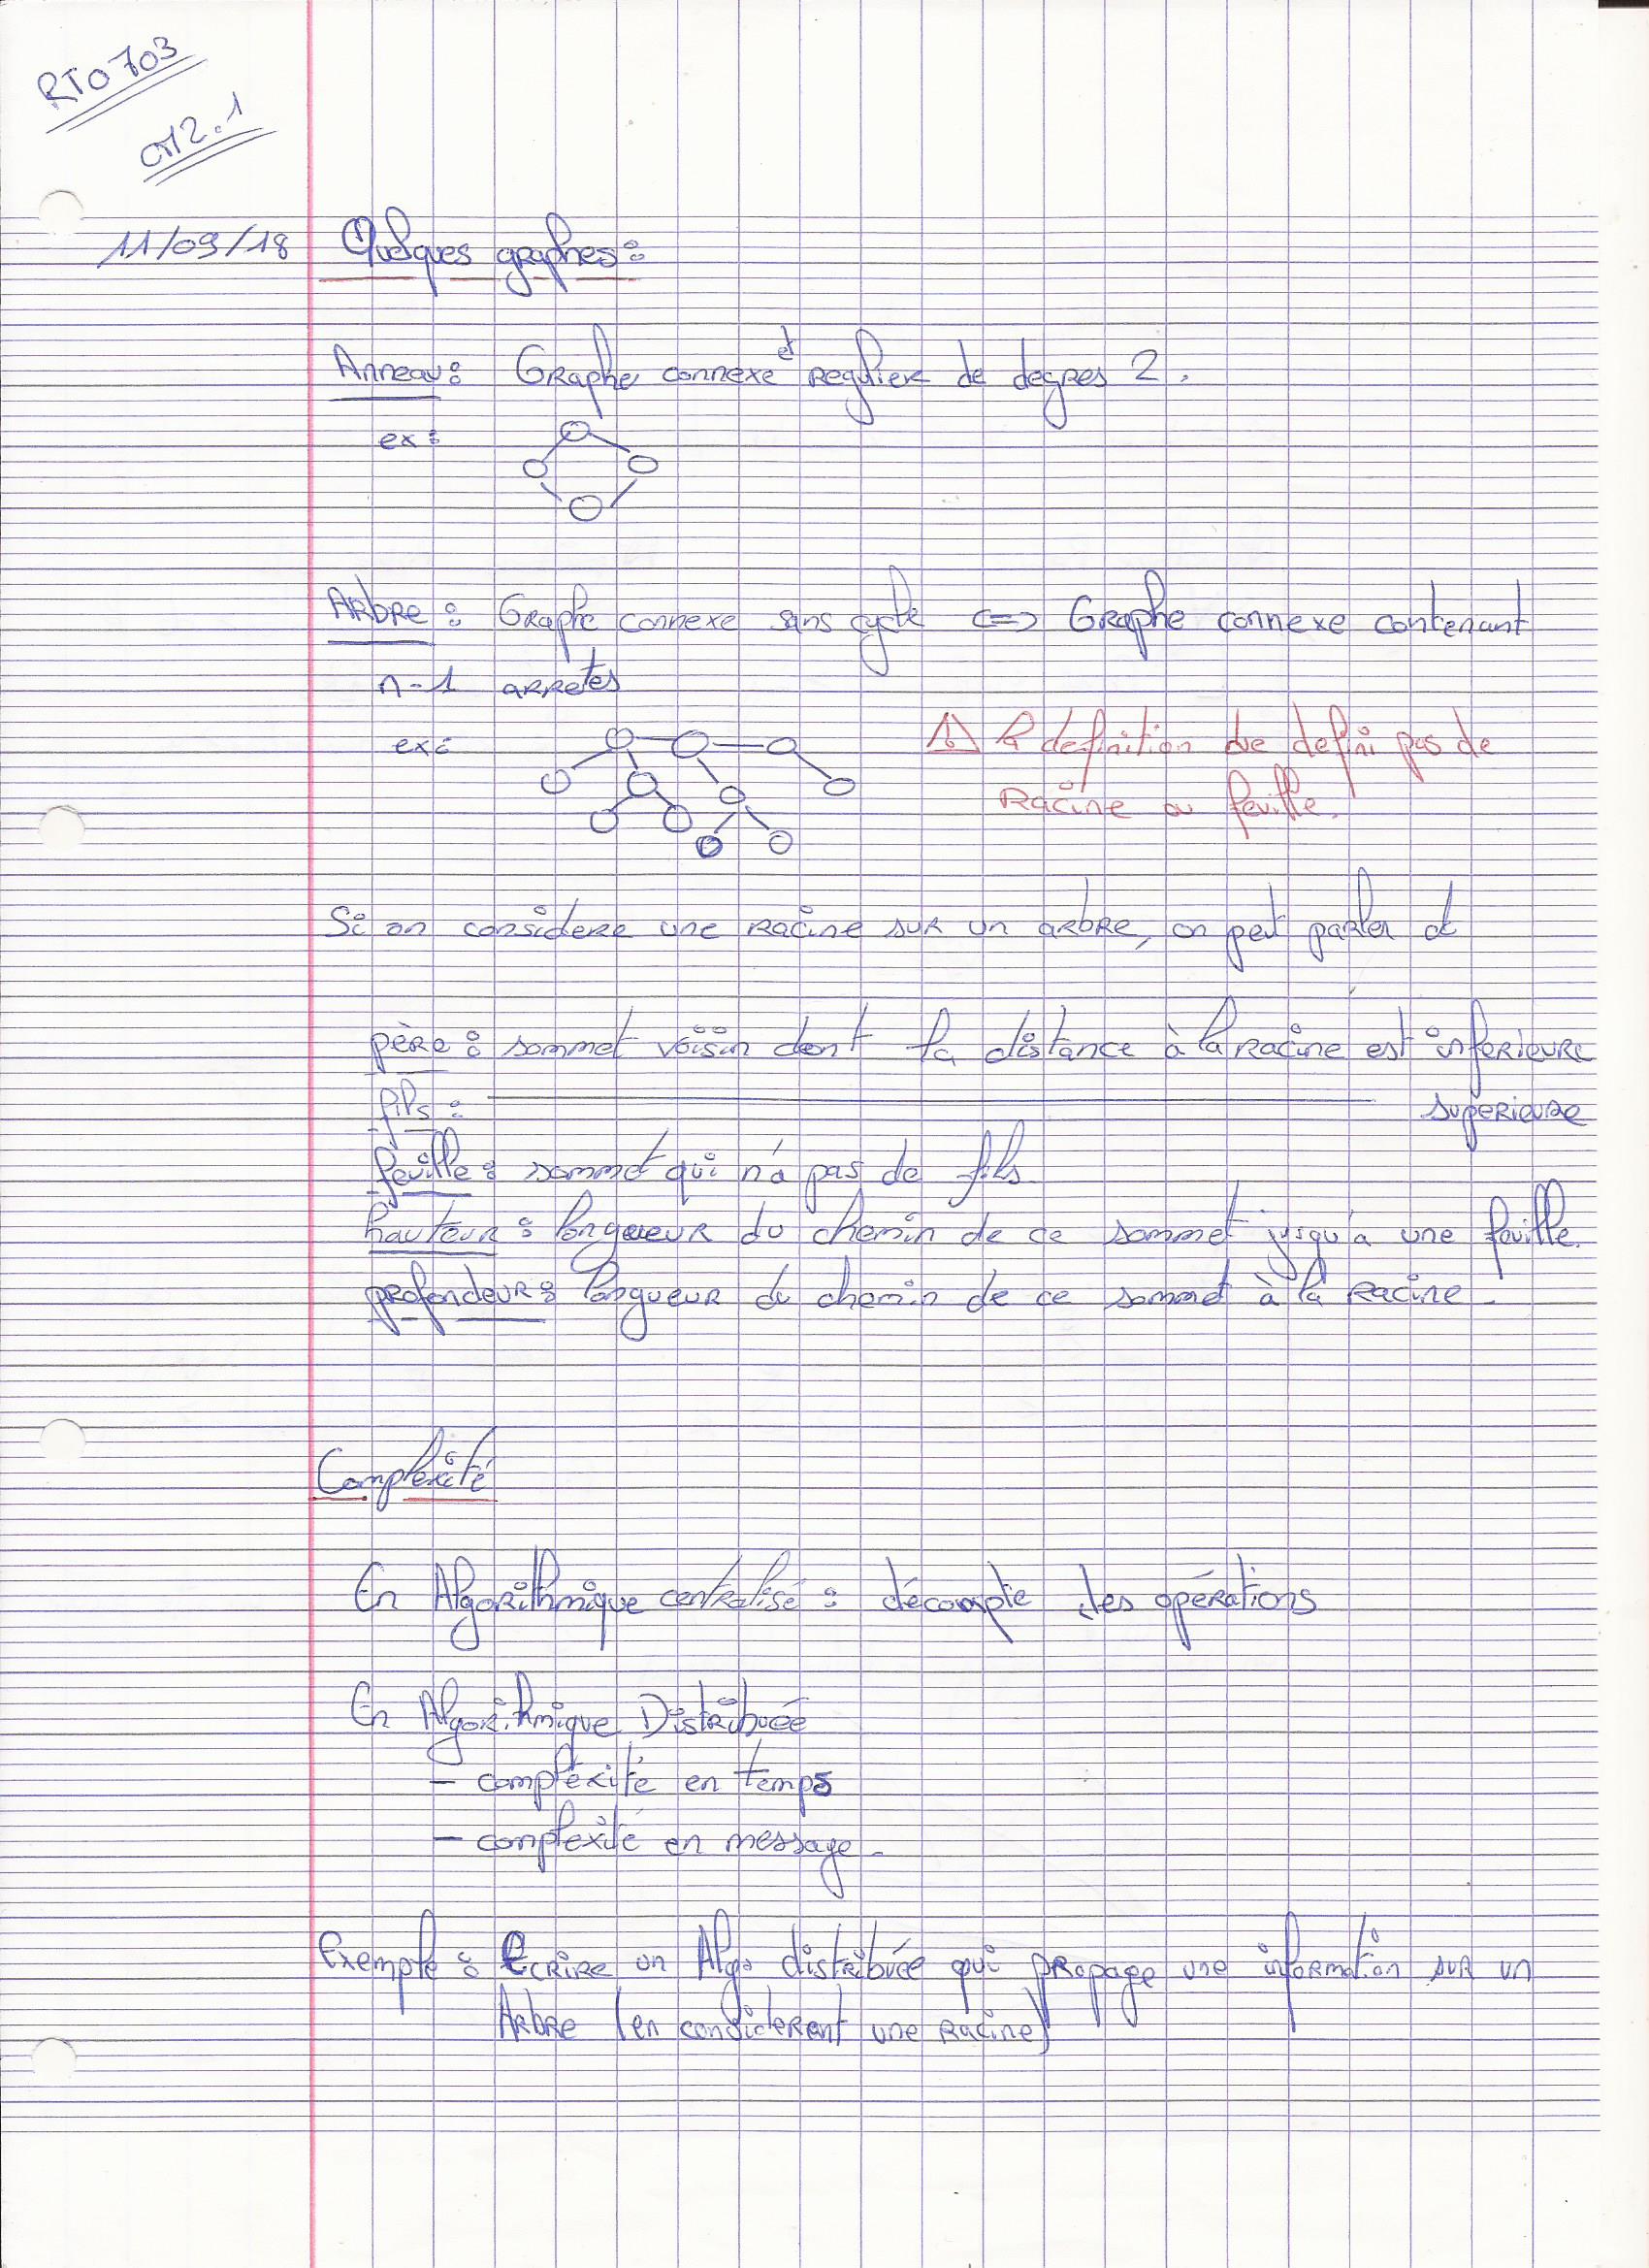 RT0703
CM2.1
11/09/18 Quelques graphes :
Anneau : Graphe connexe et regulier de degres 2.
ex :
Arbre : Graphe connexe sans cycle <=> Graphe connexe contenant
n-1 arretes
ex :
⚠ la definition ne defini pas de
racine ou feuille.
Si on considere une racine sur un arbre, on peut parler de
père : sommet voisin dont la distance à la racine est inferieure
fils : superieure
feuille : sommet qui n'a pas de fils.
hauteur : longueur du chemin de ce sommet jusqu'a une feuille.
profondeur : longueur du chemin de ce sommet à la racine.
Complexité
En Algorithmique centralisé : décompte des opérations
En Algorithmique Distribuée
- complexité en temps
- complexité en message.
Exemple : Ecrire un Algo distribuée qui propage une information sur un
Arbre (en considerent une racine)